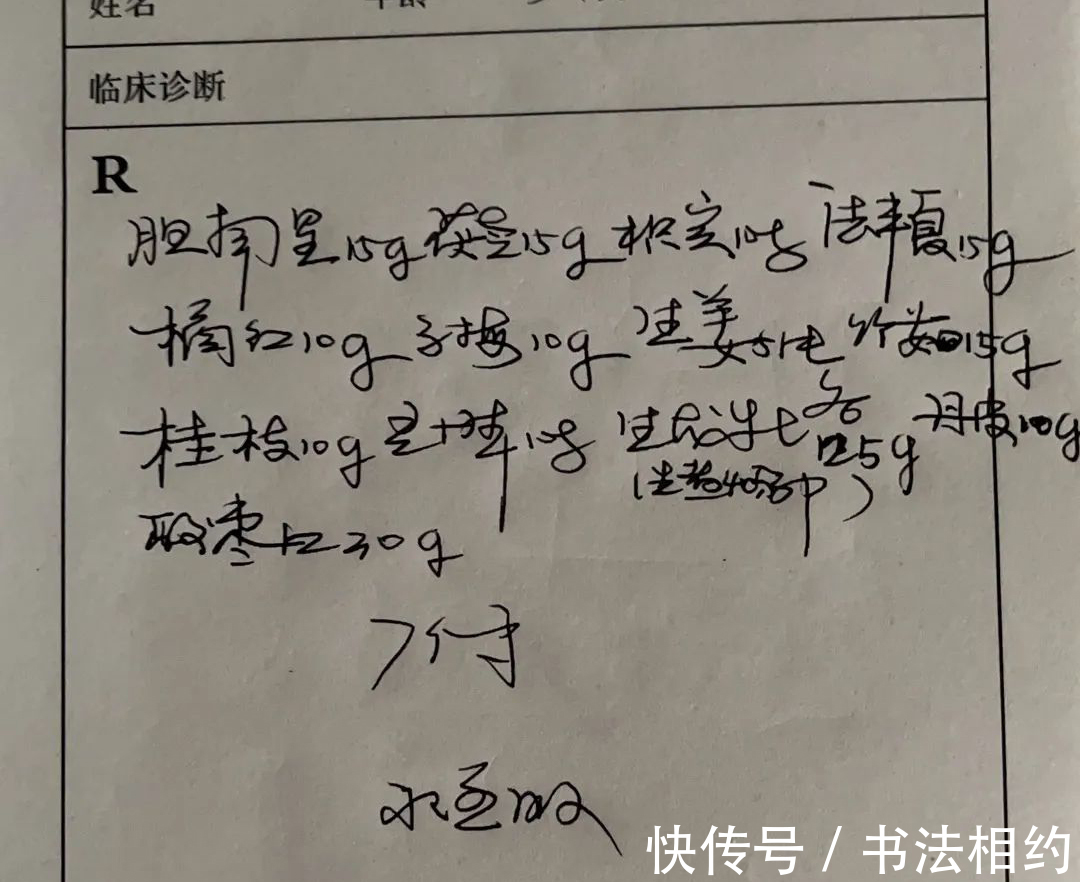 姓名 年龄
临床诊断
R
胆南星15g 茯苓15g 枳实10g 法半夏15g
橘红10g 乌梅10g 生姜5片 竹茹15g
桂枝10g 10g 生龙牡各25g 丹皮10g
(先煎40分钟)
酸枣仁30g
7付
快传号 / 书法相约